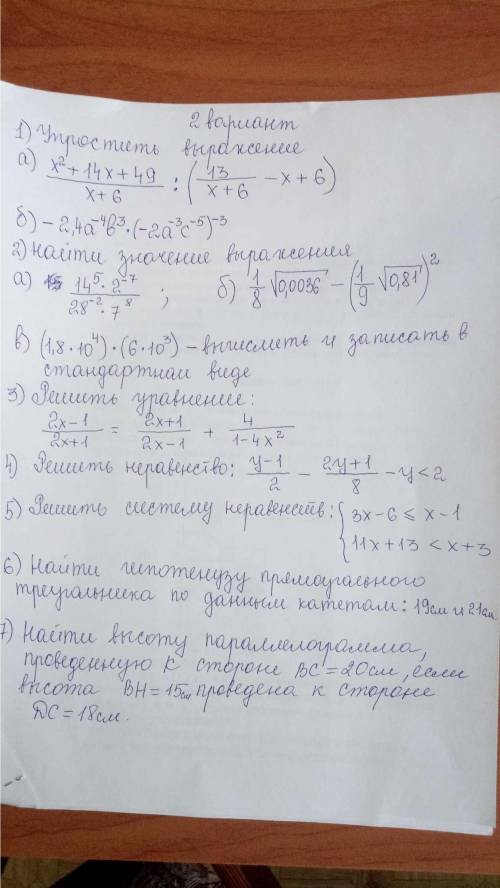 2 вариант
1) Упростить выражение
а) (x² + 14x + 49)/(x + 6) : (13/(x + 6) − x + 6)
б) − 2,4a⁻⁴b³ · (−2a⁻³c⁻⁵)⁻³
2) Найти значение выражения
а) (14⁵ · 2⁻⁷)/(28⁻² · 7⁸) ; б) 1/8 √0,0036 − (1/9 √0,81)²
в) (1,8 · 10⁴) · (6 · 10³) − вычислить и записать в
стандартном виде
3) Решить уравнение:
(2x − 1)/(2x + 1) = (2x + 1)/(2x − 1) + 4/(1 − 4x²)
4) Решить неравенство: (y − 1)/2 − (2y + 1)/8 − y < 2
5) Решить систему неравенств: { 3x − 6 ⩽ x − 1
11x + 13 < x + 3
6) Найти гипотенузу прямоугольного
треугольника по данным катетам: 19см и 21см.
7) Найти высоту параллелограмма,
проведенную к стороне BC = 20см, если
высота BH = 15см проведена к стороне
DC = 18см.